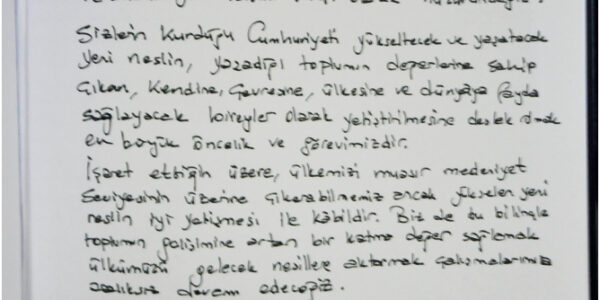 Sizlerin Kurduğu Cumhuriyeti yükseltecek ve yaşatacak
yeni neslin, yaşadığı toplumun değerlerine sahip
çıkan, kendine, çevresine, ülkesine ve dünyaya fayda
sağlayacak bireyler olarak yetiştirilmesine destek olmak
en büyük öncelik ve görevimizdir.
İşaret ettiğin üzere, ülkemizi muasır medeniyet
seviyesinin üzerine çıkarabilmemiz ancak yükselen yeni
neslin iyi yetişmesi ile kabildir. Biz de bu bilinçle
toplumun gelişimine artan bir katma değer sağlamak
ülkümüzü gelecek nesillere aktarmak çalışmalarımıza
aralıksız devam edeceğiz.